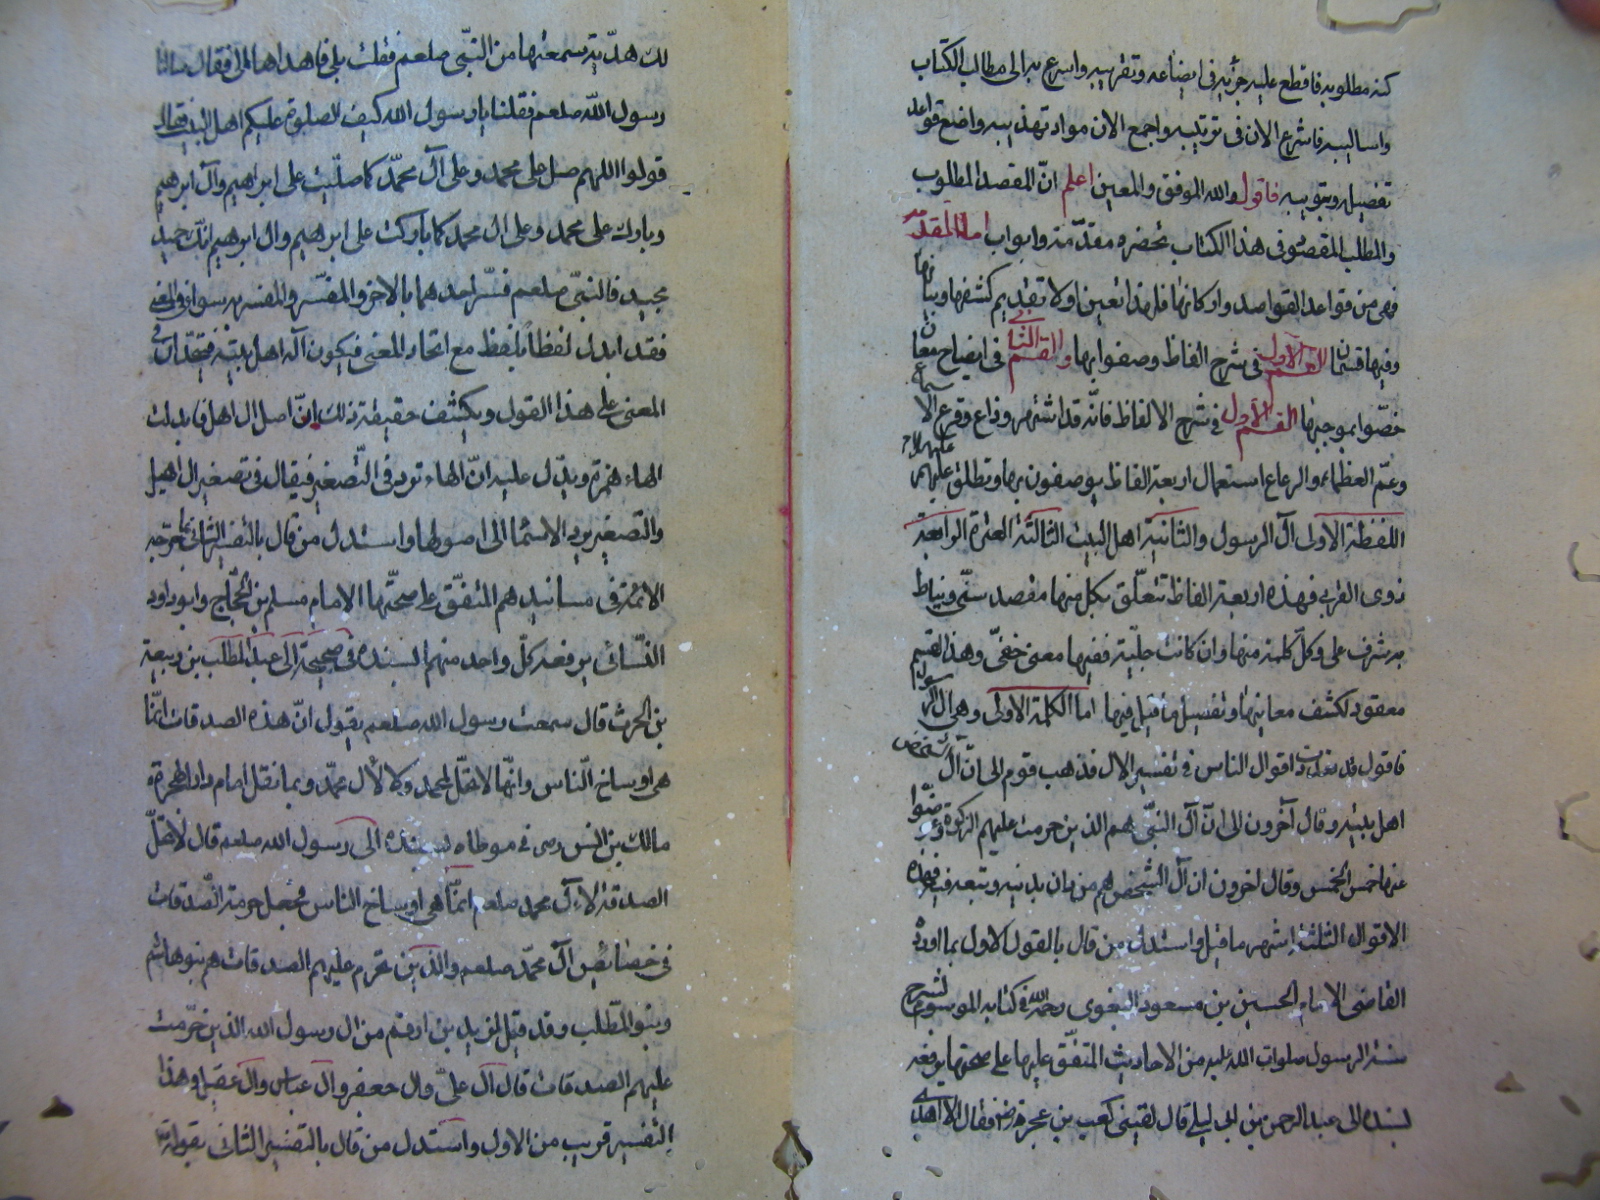 كنه مطلوبه فاقطع عليه جزيه في ايضاعه وتقريبه واسرع به الى مطالب الكتاب
واساليبه فاشرع الان في ترتيبه واجمع الان مواد تهذيبه واضع قواعد
تفصيله وتبويبه فاقول والله الموفق والمعين اعلم انّ المقصد المطلوب
والمطلب المقصود في هذا الكتاب تحضره مقدّمة وابواب اما المقدّمة
فهي من قواعد القواصد واركانها فلهذا تعين اولا تقديم كشفها وبيانها
وفيها قسمان القسم الاول في شرح الفاظ وصفوا بها والقسم الثاني في ايضاح معان
خصّوا بموجبها القسم الاول في شرح الالفاظ فانّه قد اشتهر وذاع وقرع الاسماع
وعمّ العظماء والرعاع استعمال اربعة الفاظ يوصفون بها وتطلق عليهم عليهم السلام
اللفظة الاولى آل الرسول والثانية اهل البيت الثالثة العترة الرابعة
ذوى القربى فهذه اربعة الفاظ تتعلّق بكل منها مقصد سنّي ونياط
به شرف على وكلّ كلمة منها وان كانت جليّة ففيها معنى خفيّ وهذا القسم
معقود لكشف معانيها وتفصيل ما قيل فيها اما الكلمة الاولى وهي آل الرسول
فاقول قد اقوال الناس في تفسير الال فذهب قوم الى انّ آل الشخص
اهل بيته وقال آخرون الى ان آل النبيّ هم الذين حرمت عليهم الزكوة وعوّضوا
عنها خمس الخمس وقال اخرون ان آل الشخص هم من دان بدينه وتبعه فيه فهذه
الاقوال الثلثة اشهر ما قيل واستدل من قال بالقول الاول بما اورده
القاضي الامام الحسين بن مسعود البغوى رحمه الله في كتابه الموسوم بشرح
سنة الرسول صلوات الله عليه من الاحاديث المتفق عليها على صحتها يرفعه
بسنده الى عبد الرحمن بن ابى ليلى قال لقيني كعب بن عجرة فقال الا اهدى
لك هديّة سمعتها من النبّي صلعم فقلت بلى فاهداها الىّ فقال سالنا
رسول الله صلعم فقلنا يا رسول الله كيف الصلوة عليكم اهل البيت فقال
قولوا اللهم صل على محمد وعلى آل محمّد كما صلّيت على ابراهيم وآل ابرهيم
وبارك على محمّد وعلى ال محمد كما باركت على ابرهيم وال ابرهيم انّك حميد
مجيد فالنبّي صلعم فسّر احدهما بالاخر والمفسّر والمفسر به سواء في المعنى
فقد ابدل لفظاً بلفظ مع اتحاد المعنى فيكون آله اهل بيته فيتحدّان في
المعنى على هذا القول ويكشف حقيقة ذلك انّ اصل ال اهل فابدلت
الهاء همزة ويدّل عليه انّ الهاء تردّ في التّصغير فيقال في تصغير ال اهيل
والتصغير يرد الاسماء الى اصولها واستدل من قال بالتفسير الثاني بما خرّجه
الائمة في مسانيدهم المتفّق على صحّتها الامام مسلم بن الحجّاج وابو داود
النّسائى يرفعه كلّ واحد منهم بسنده في صحيحه الى عبد المطلب بن ربيعة
بن الحرث قال سمعت رسول الله صلعم يقول انّ هذه الصدقات انمّا
هي اوساخ النّاس وانّها لا تحلّ لمحمد ولا لآل محمّد وبما نقل امام دار الهجرة
مالك بن انس رضى في موطاه بسنده الى رسول الله صلعم قال لا تحلّ
الصدقة لآل محمد صلعم انمّا هي اوساخ الناس فجعل حرمة الصّدقات
في خصائص آل محمّد صلعم والذين تحرم عليهم الصدقات هم بنو هاشم
وبنو المطّلب وقد قيل لزيد بن ارقم من ال رسول الله الذين حرّمت
عليهم الصدقات قال آل علىّ وال جعفر وال عباس وال عقيل وهذا
التفسير قريب من الاول واستدل من قال بالتفسير الثاني بقوله